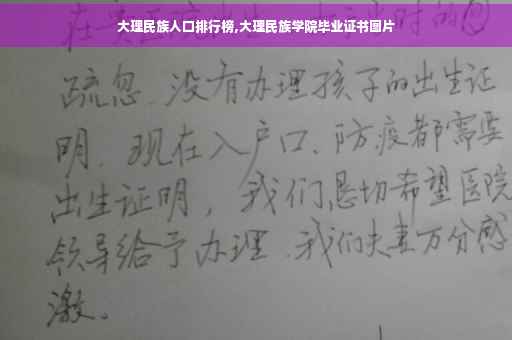 大理民族人口排行榜,大理民族学院毕业证书图片
疏忽、没有办理孩子的出生证
明、现在入户口、防疫都需要
出生证明，我们恳切希望医院
领导给予办理、我们夫妻万分感
激。